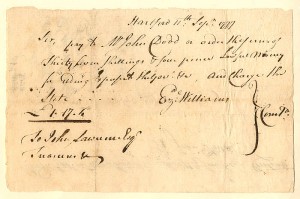 Hartford 11th Sepr. 1777
Sir, pay to Mr John Dodd or order the sum of
Thirty seven Shillings & four pence Lawful Money
for riding Express & and Charge the
State
Ezl Williams
£1.17.4
Comtt
To John Lawrence Esqr
Treasurer